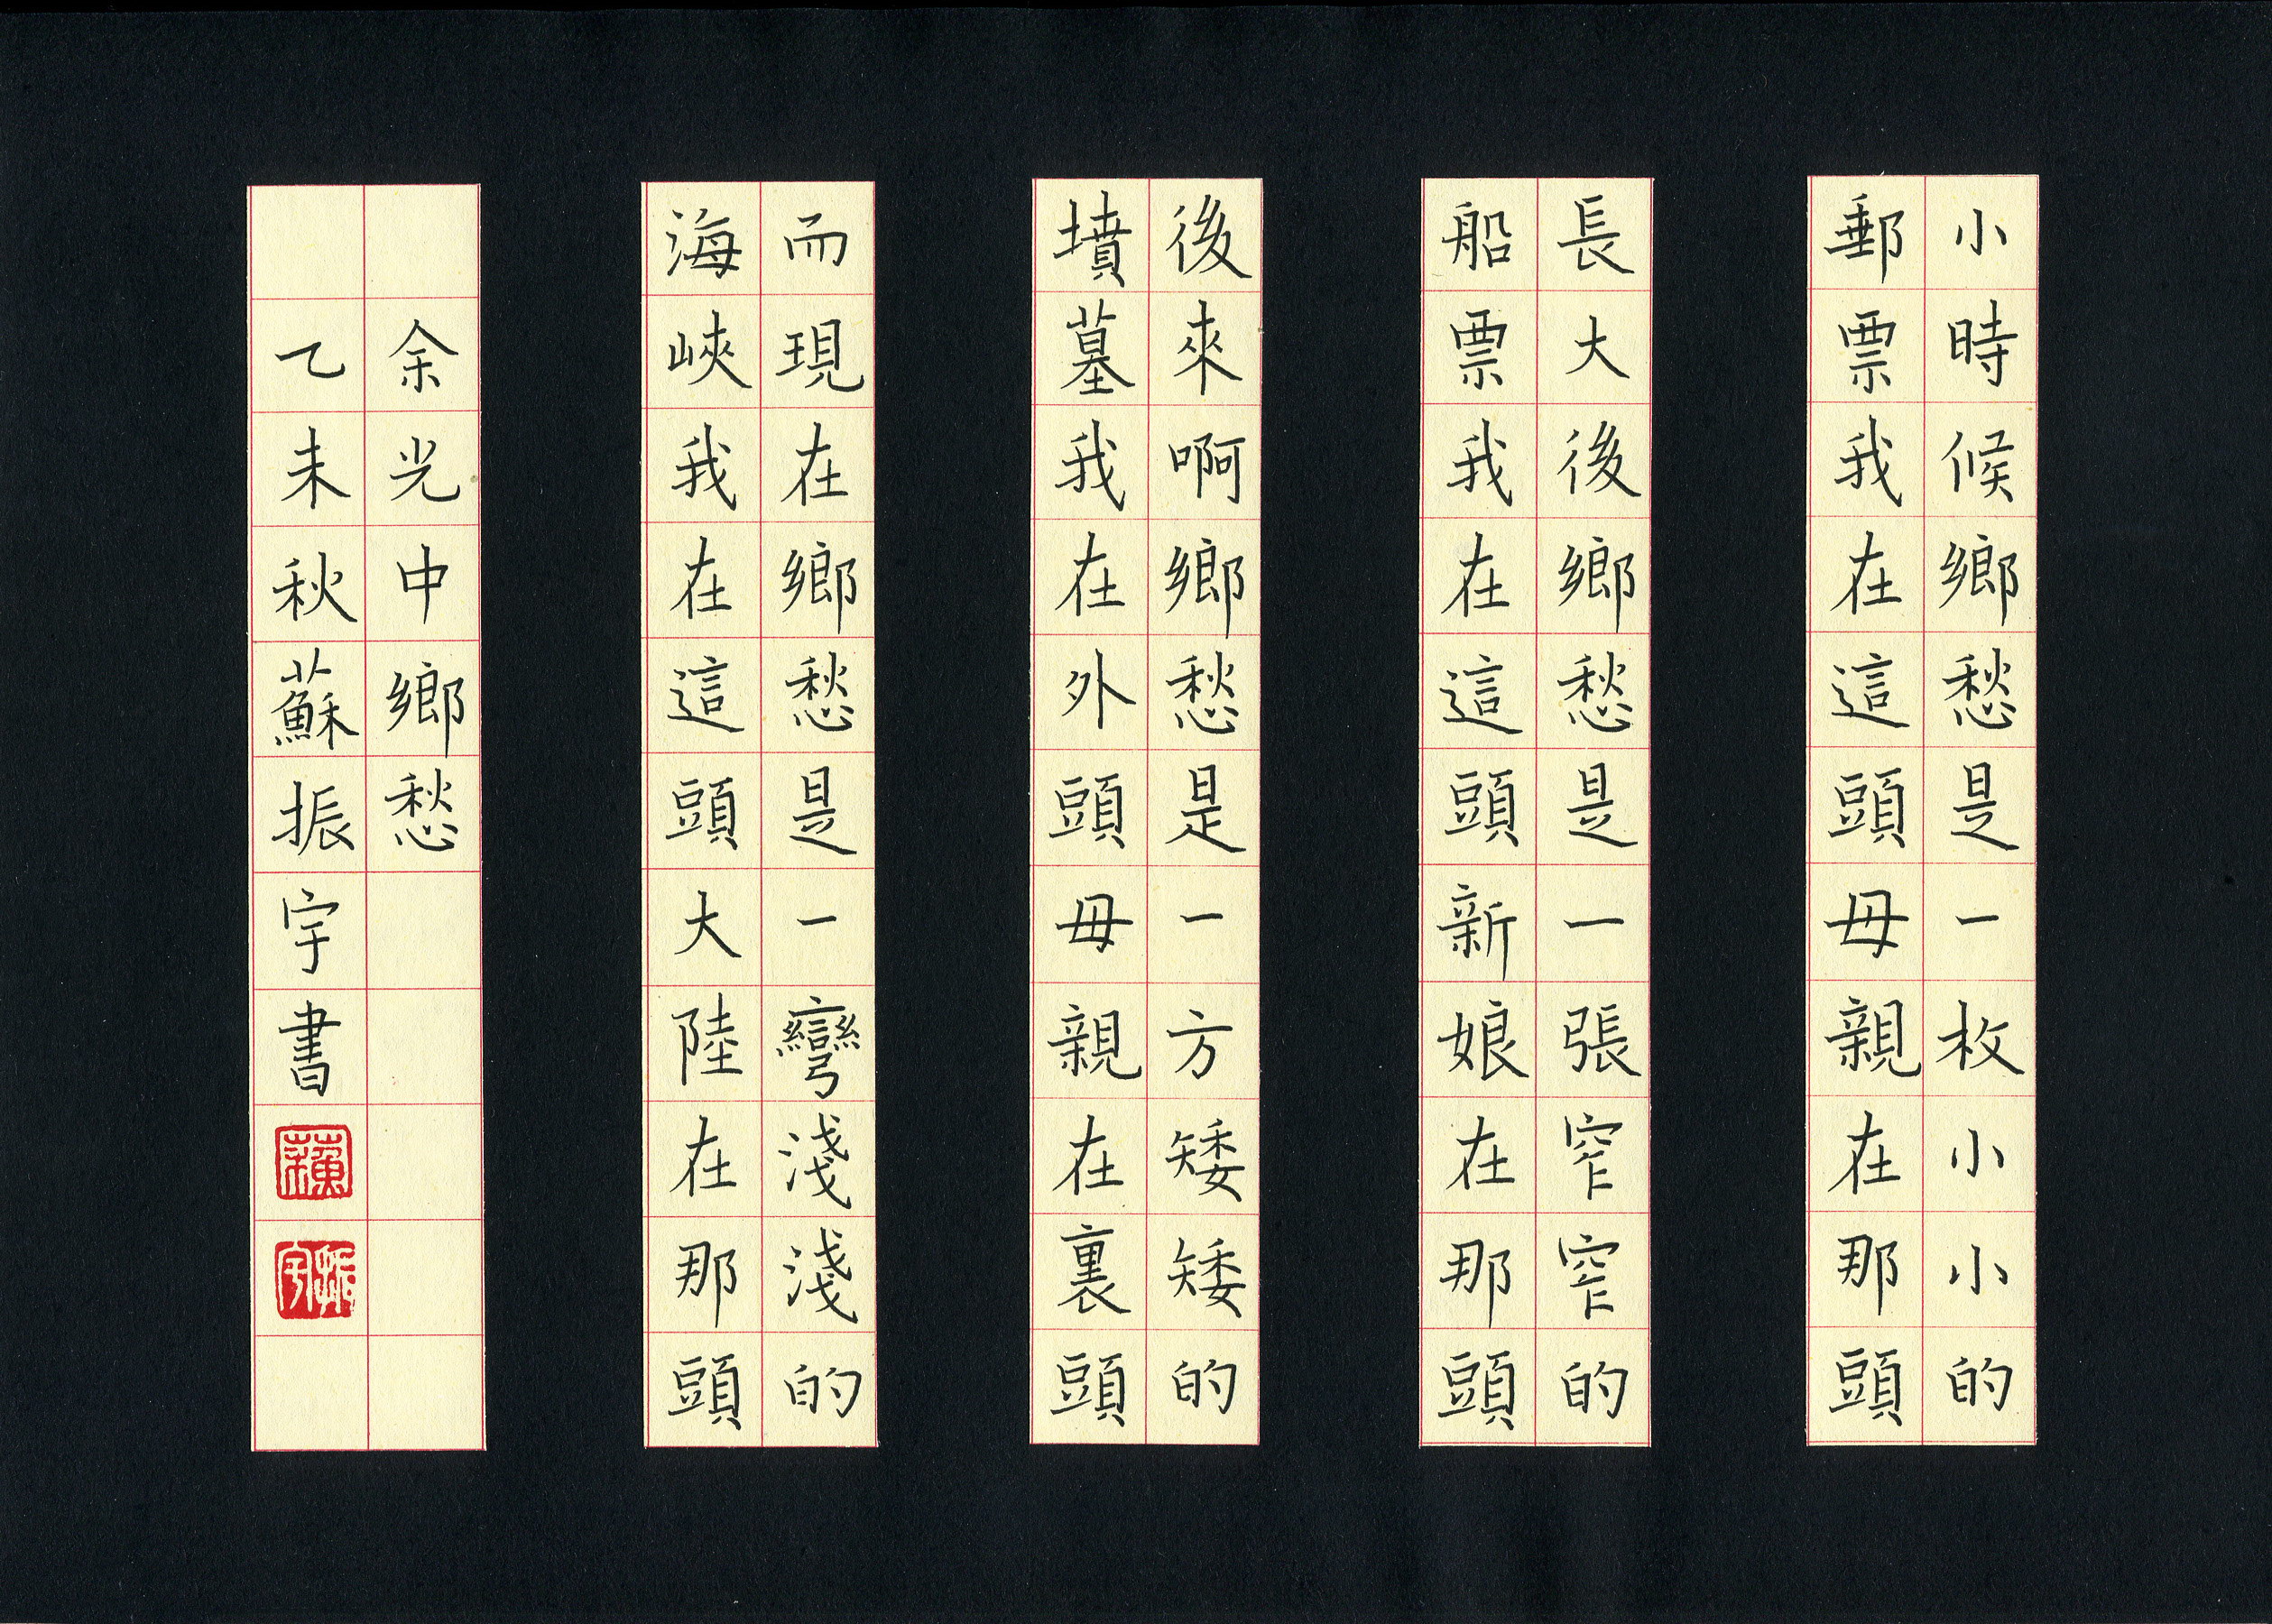 小時候鄉愁是一枚小小的
郵票我在這頭母親在那頭
長大後鄉愁是一張窄窄的
船票我在這頭新娘在那頭
後來啊鄉愁是一方矮矮的
墳墓我在外頭母親在裏頭
而現在鄉愁是一彎淺淺的
海峽我在這頭大陸在那頭
余光中鄉愁
乙未秋蘇振宇書
蘇
振宇